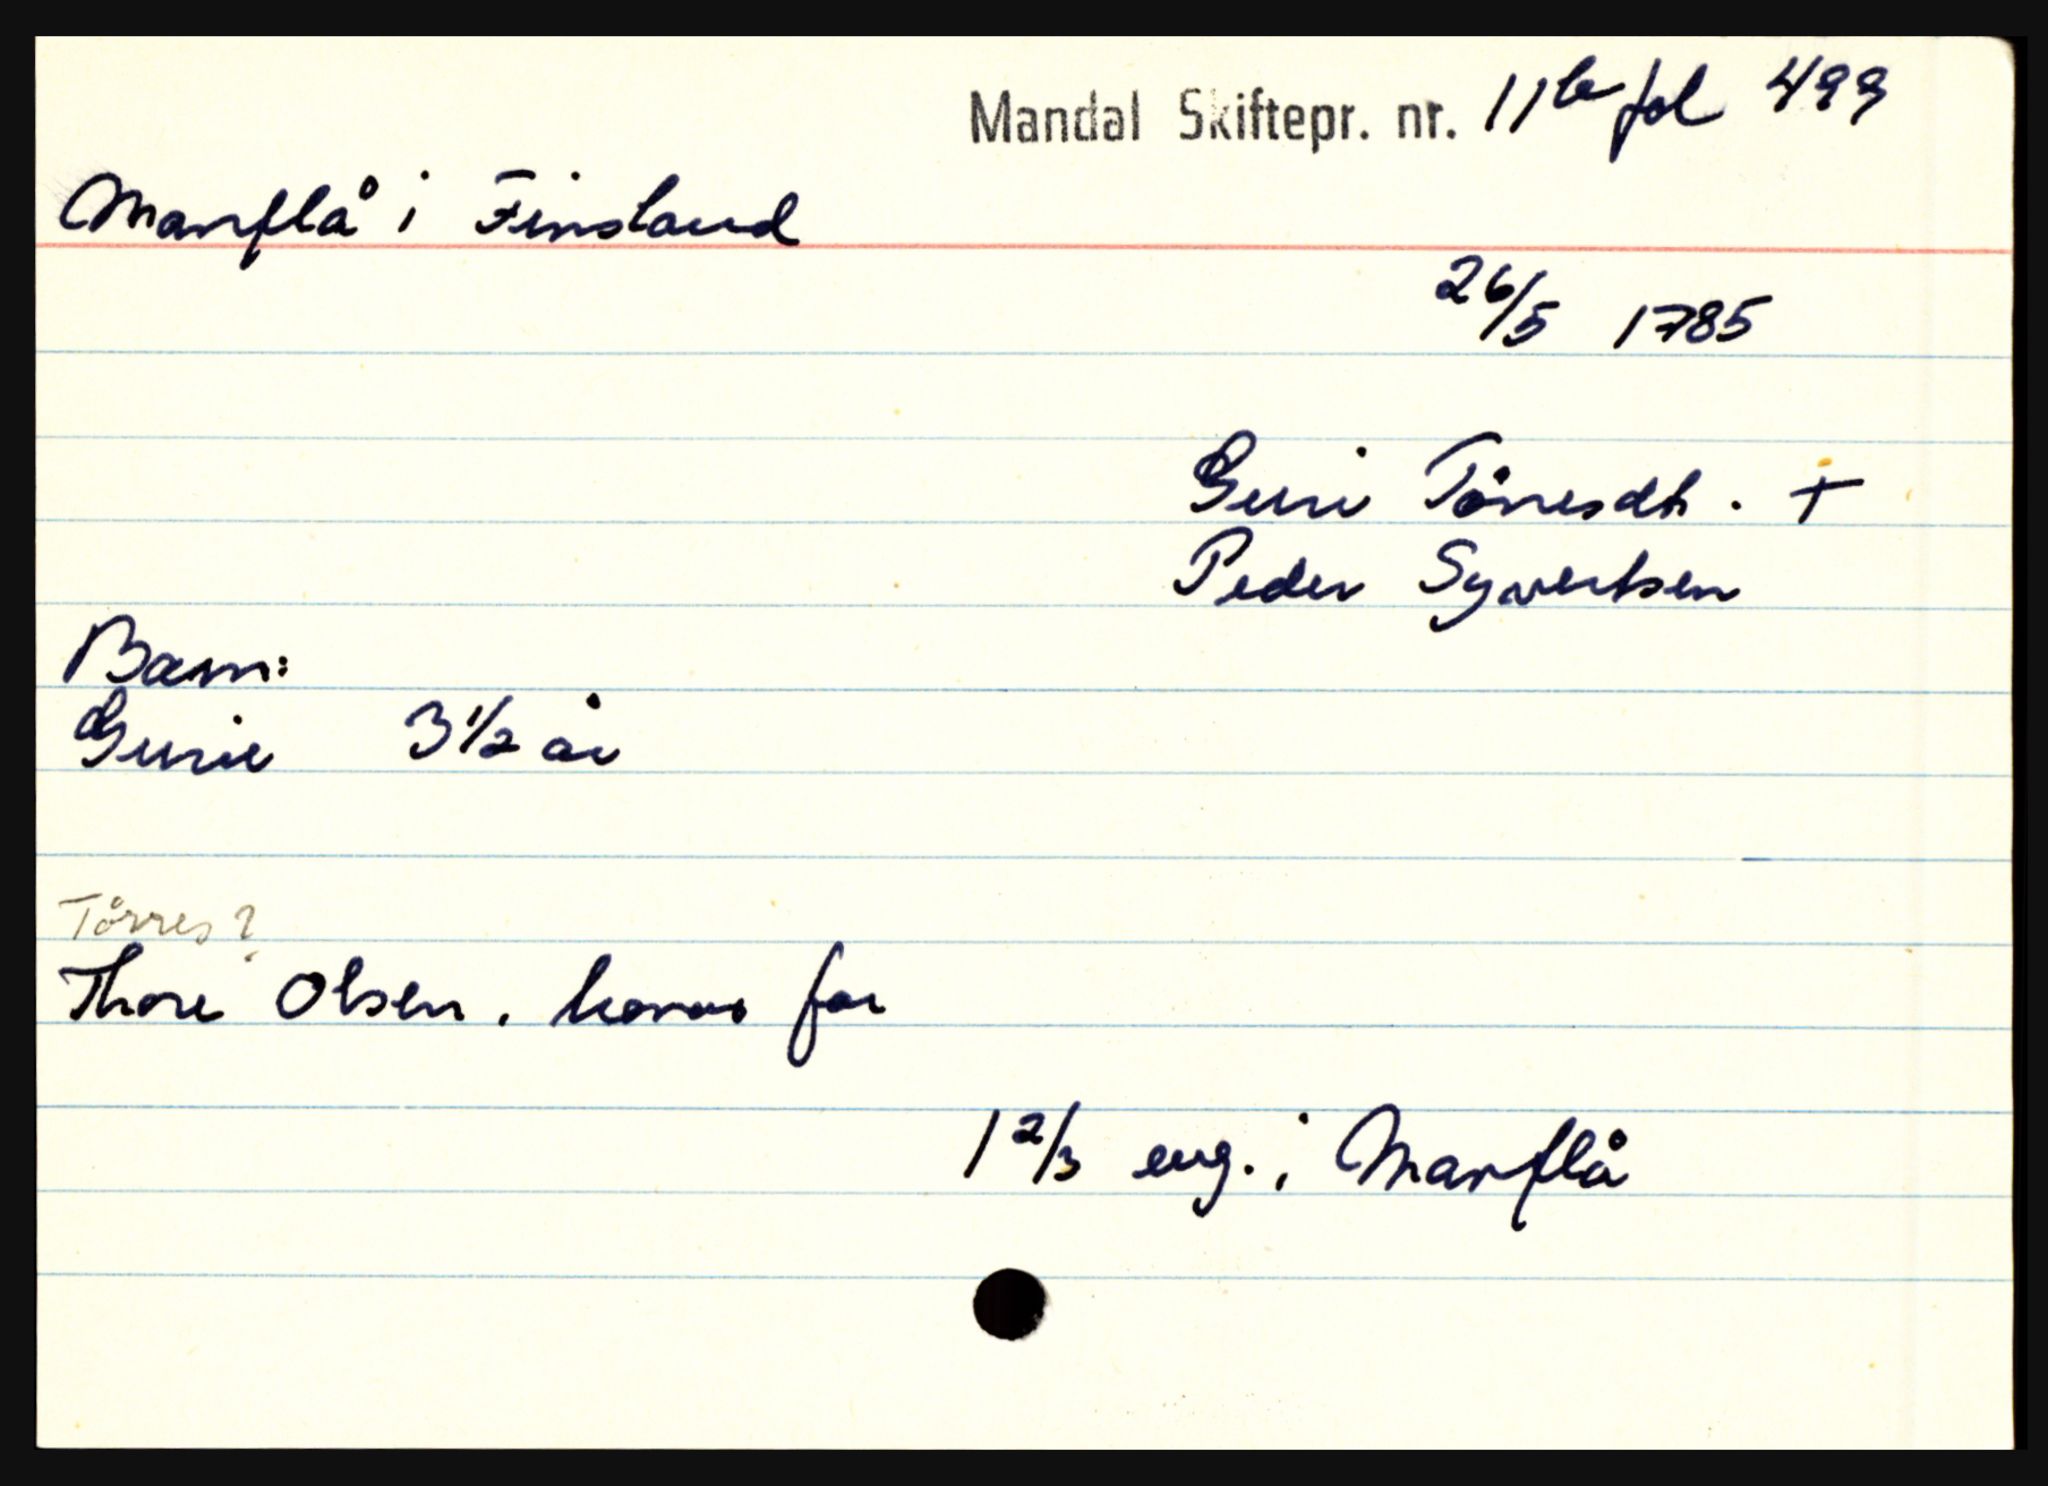 Mandal Skiftepr. nr. 11b fol 499
Manflå i Finsland
26/5 1785
Guri Tórresdt. +
Peder Syvertsen
Barn:
Gurie 3 1/2 år
Tórres?
Thore Olsen, konas far
1 2/3 eng. i Manflå